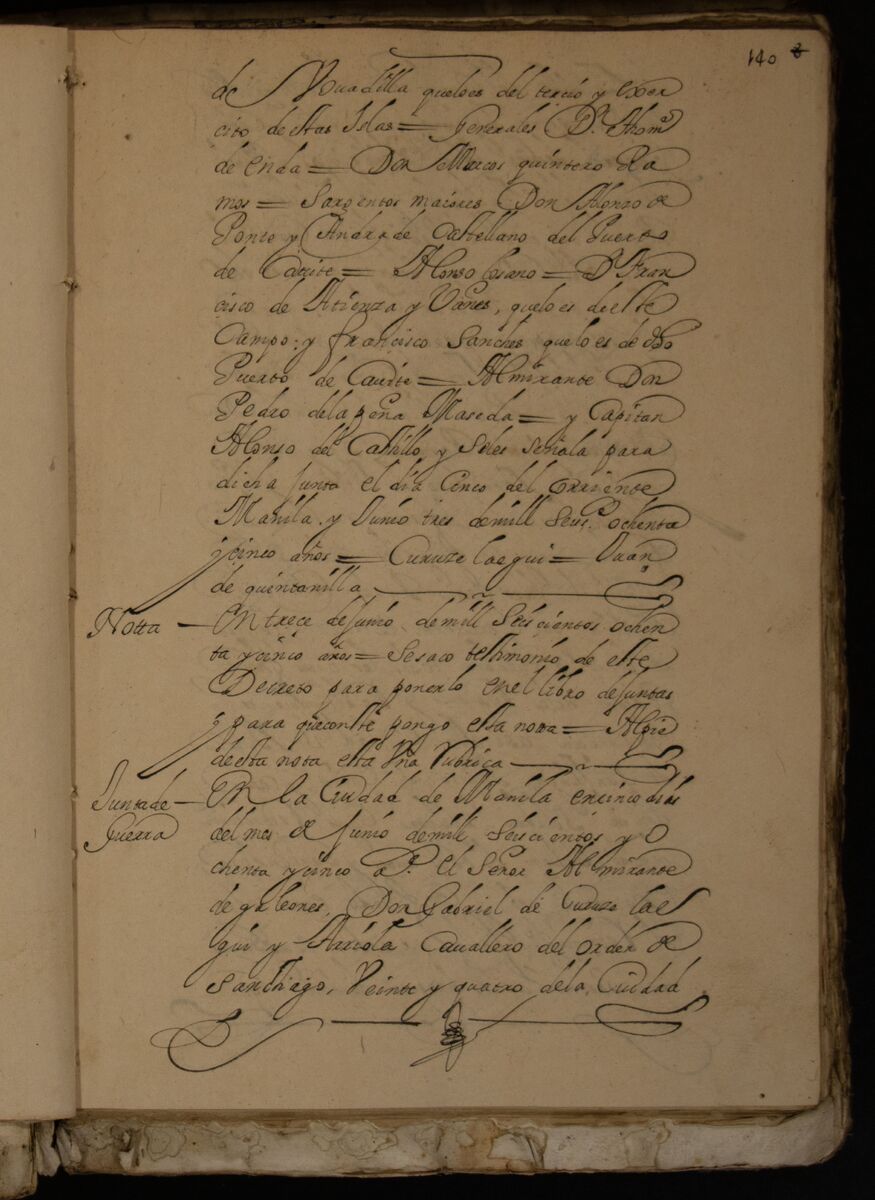 140
de Vuadilla quelo es del tercio y exer
cito destas Islas = Generales D.n Thom.s
de enda = Don Marcos quintero Ra
mos = Sargentos maiores Don Alonzo de
Ponte y Andrade Castellano del Puerto
de Cauite = Alonso Cosano = D.n Fran
cisco de Atienza y Vañes, quelo es de este
Campo; y francisco Sanches quelo es de dho
Puerto de Cauite = Almirante Don
Pedro dela peña Maseda = y Capitan
Alonso del Castillo, y Seles señala para
dicha Junta el dia Cinco del Corriente
Manila y Junio tres demill Seisc.s ochenta
y cinco años = Curuzelaegui = Juan
de quintanilla
Notta — En trece de Junio demill Seiscientos ochen
ta y cinco años = Sesaco testimonio de este
Decreto para ponerlo en el libro de Juntas
y para queconste pongo esta notta = Al pie
desta nota esta Vna Rubrica
Junta de — En la Ciudad de Manila en cinco dias
Guerra del mes de Junio demill Seiscientos y o
chenta y cinco a.s el Señor Almirante
de galeones, Don Gabriel de Curuze lae
gui y Arriola Cauallero del orden de
Santhiago, Veinte y quatro dela Ciudad